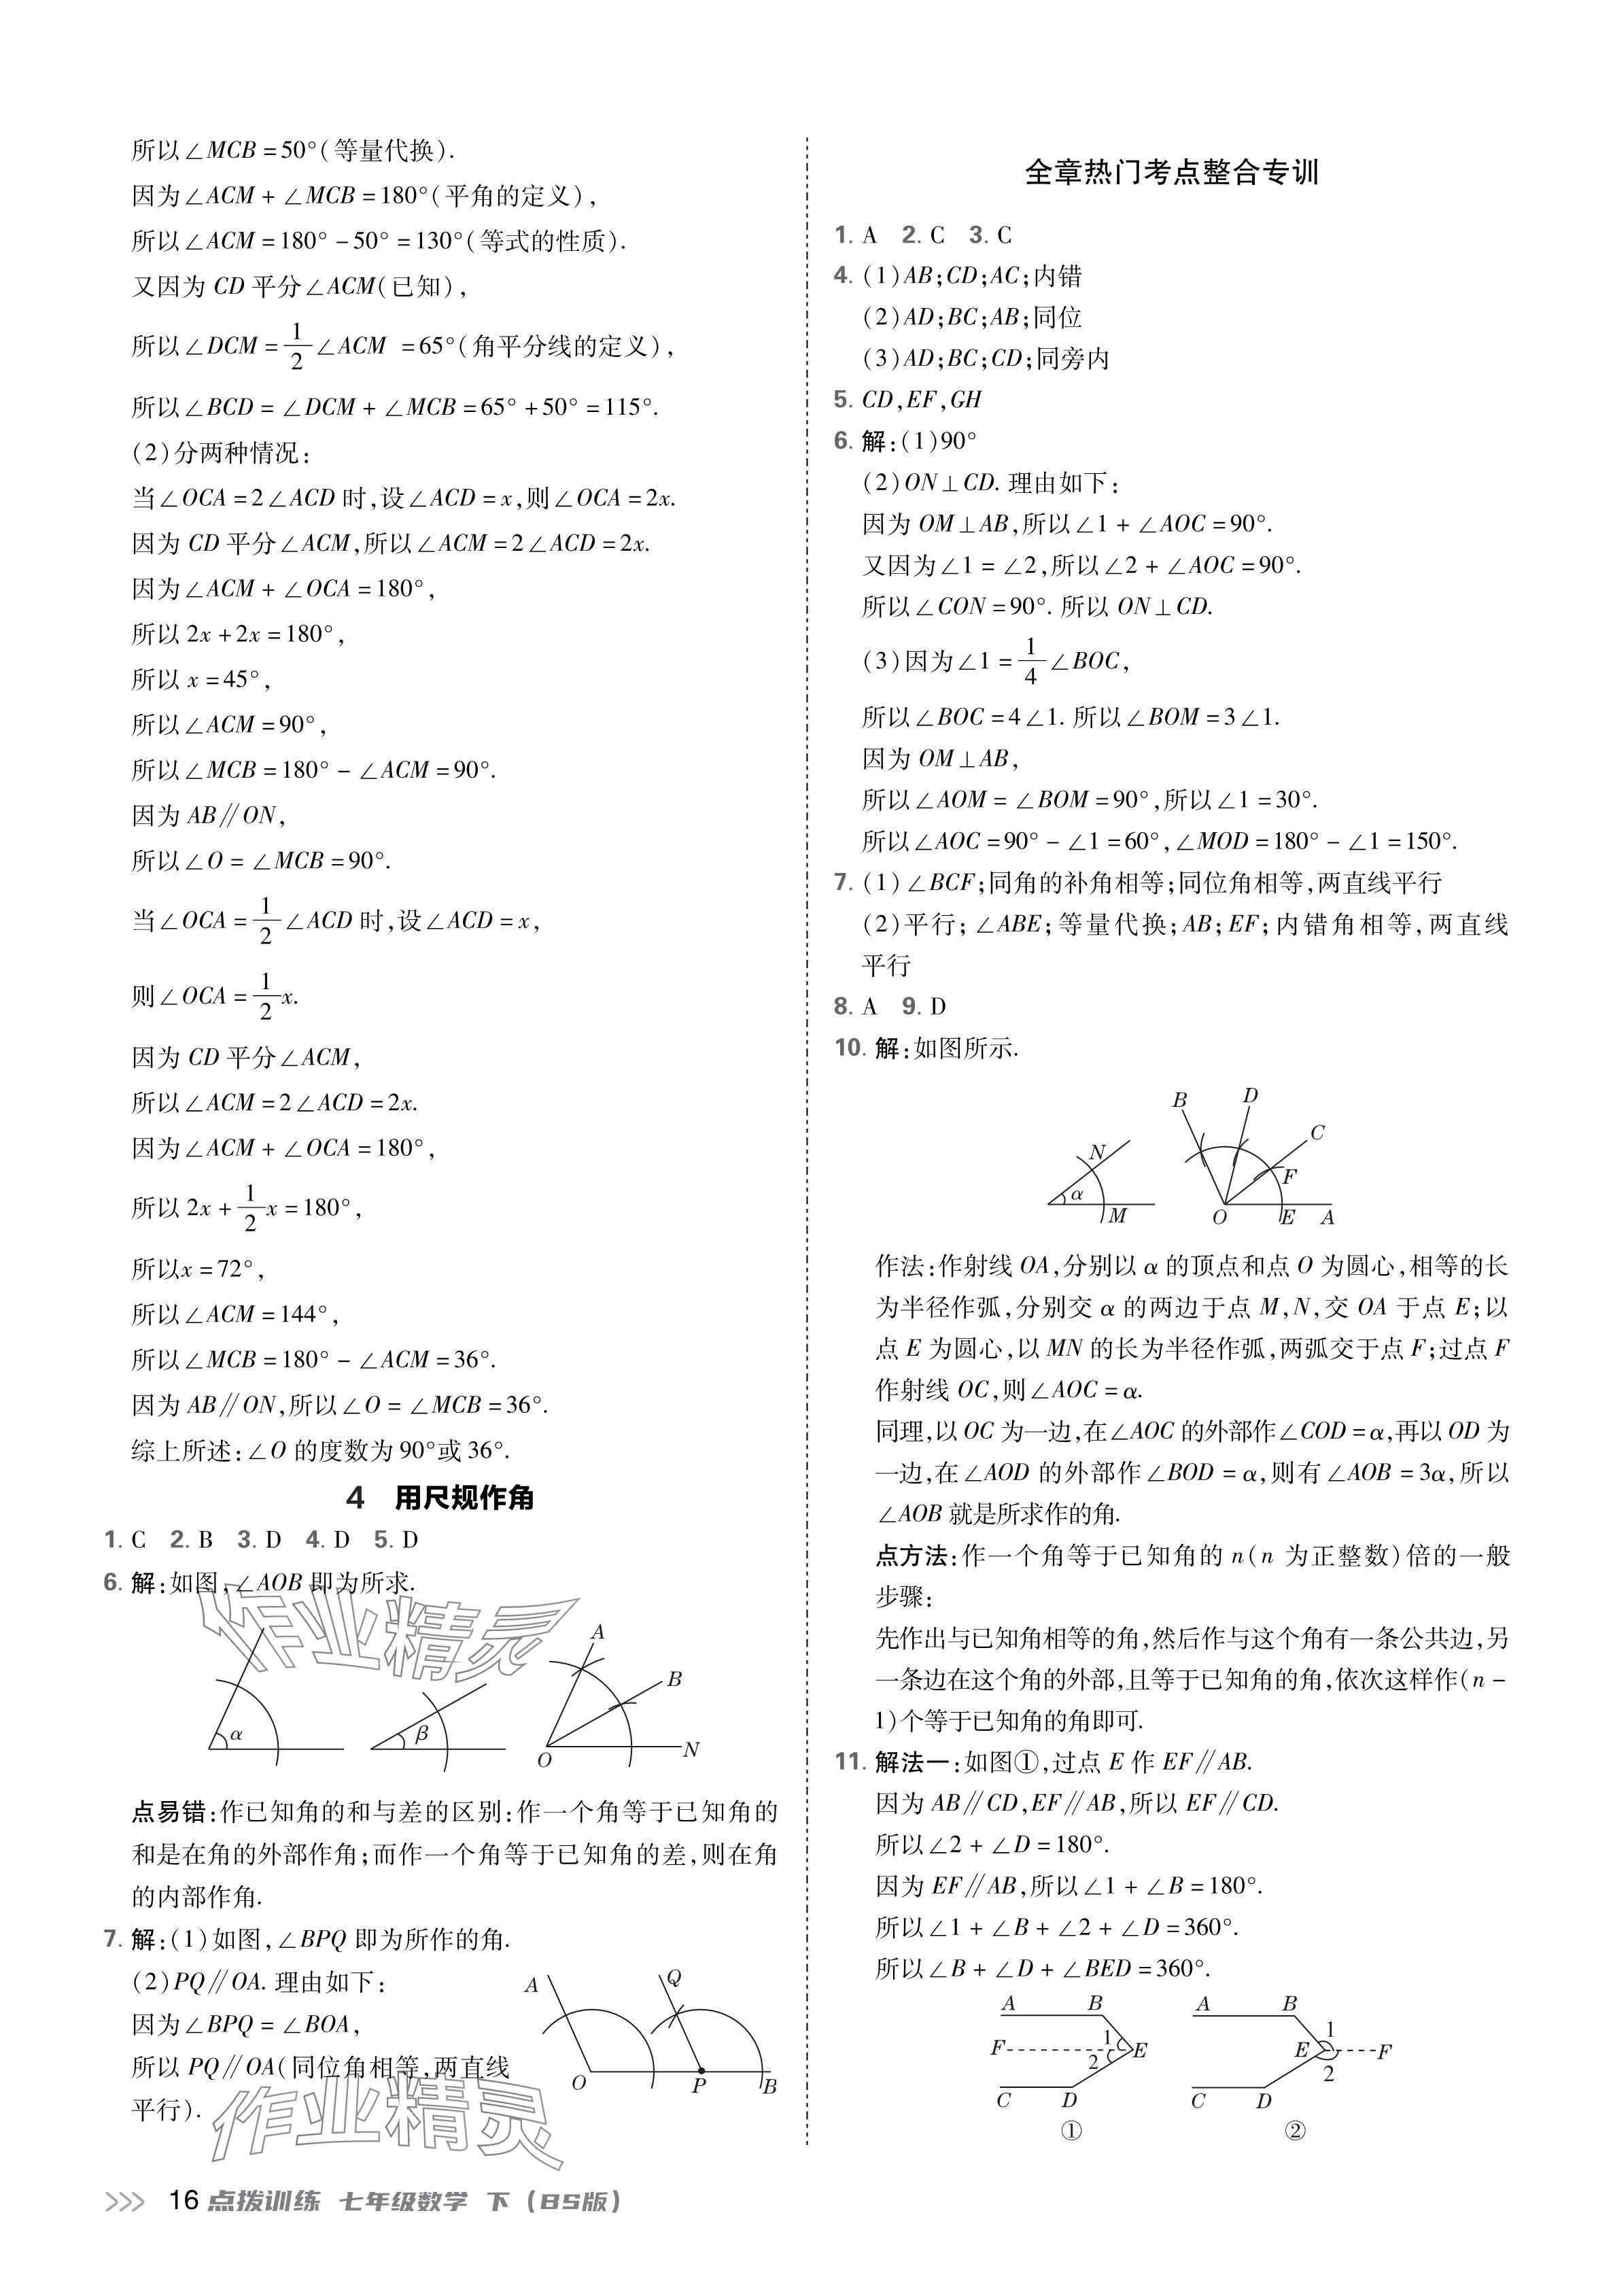 所以∠MCB=50°(等量代换).
因为∠ACM+∠MCB=180°(平角的定义),
所以∠ACM=180°-50°=130°(等式的性质).
又因为CD平分∠ACM(已知),
所以∠DCM=1/2∠ACM =65°(角平分线的定义),
所以∠BCD=∠DCM+∠MCB=65°+50°=115°.
(2)分两种情况:
当∠OCA=2∠ACD时,设∠ACD=x,则∠OCA=2x.
因为CD平分∠ACM,所以∠ACM=2∠ACD=2x.
因为∠ACM+∠OCA=180°,
所以2x+2x=180°,
所以x=45°,
所以∠ACM=90°,
所以∠MCB=180°-∠ACM=90°.
因为AB∥ON,
所以∠O=∠MCB=90°.
当∠OCA=1/2∠ACD时,设∠ACD=x,
则∠OCA=1/2x.
因为CD平分∠ACM,
所以∠ACM=2∠ACD=2x.
因为∠ACM+∠OCA=180°,
所以2x+1/2x=180°,
所以x=72°,
所以∠ACM=144°,
所以∠MCB=180°-∠ACM=36°.
因为AB∥ON,所以∠O=∠MCB=36°.
综上所述:∠O的度数为90°或36°.
4 用尺规作角
1. C 2. B 3. D 4. D 5. D
6. 解:如图,∠AOB即为所求.
作业精灵
α
β
A
B
O
N
点易错:作已知角的和与差的区别:作一个角等于已知角的
和是在角的外部作角;而作一个角等于已知角的差,则在角
的内部作角.
7. 解:(1)如图,∠BPQ即为所作的角.
(2)PQ∥OA.理由如下:
因为∠BPQ=∠BOA,
所以PQ∥OA(同位角相等,两直线
平行).
A
Q
O
P
B
作业精灵
全章热门考点整合专训
1. A 2. C 3. C
4. (1)AB;CD;AC;内错
(2)AD;BC;AB;同位
(3)AD;BC;CD;同旁内
5. CD,EF,GH
6. 解:(1)90°
(2)ON⊥CD.理由如下:
因为OM⊥AB,所以∠1+∠AOC=90°.
又因为∠1=∠2,所以∠2+∠AOC=90°.
所以∠CON=90°.所以ON⊥CD.
(3)因为∠1=1/4∠BOC,
所以∠BOC=4∠1.所以∠BOM=3∠1.
因为OM⊥AB,
所以∠AOM=∠BOM=90°,所以∠1=30°.
所以∠AOC=90°-∠1=60°,∠MOD=180°-∠1=150°.
7. (1)∠BCF;同角的补角相等;同位角相等,两直线平行
(2)平行;∠ABE;等量代换;AB;EF;内错角相等,两直线
平行
8. A 9. D
10. 解:如图所示.
N
α
M
B
D
C
F
O
E
A
作法:作射线OA,分别以α的顶点和点O为圆心,相等的长
为半径作弧,分别交α的两边于点M,N,交OA于点E;以
点E为圆心,以MN的长为半径作弧,两弧交于点F;过点F
作射线OC,则∠AOC=α.
同理,以OC为一边,在∠AOC的外部作∠COD=α,再以OD为
一边,在∠AOD的外部作∠BOD=α,则有∠AOB=3α,所以
∠AOB就是所求作的角.
点方法:作一个角等于已知角的n(n为正整数)倍的一般
步骤:
先作出与已知角相等的角,然后作与这个角有一条公共边,另
一条边在这个角的外部,且等于已知角的角,依次这样作(n-
1)个等于已知角的角即可.
11. 解法一:如图①,过点E作EF∥AB.
因为AB∥CD,EF∥AB,所以EF∥CD.
所以∠2+∠D=180°.
因为EF∥AB,所以∠1+∠B=180°.
所以∠1+∠B+∠2+∠D=360°.
所以∠B+∠D+∠BED=360°.
A
B
F
1
2
E
C
D
①
A
B
E
1
2
F
C
D
②
16 点拨训练 七年级数学 下(BS版)